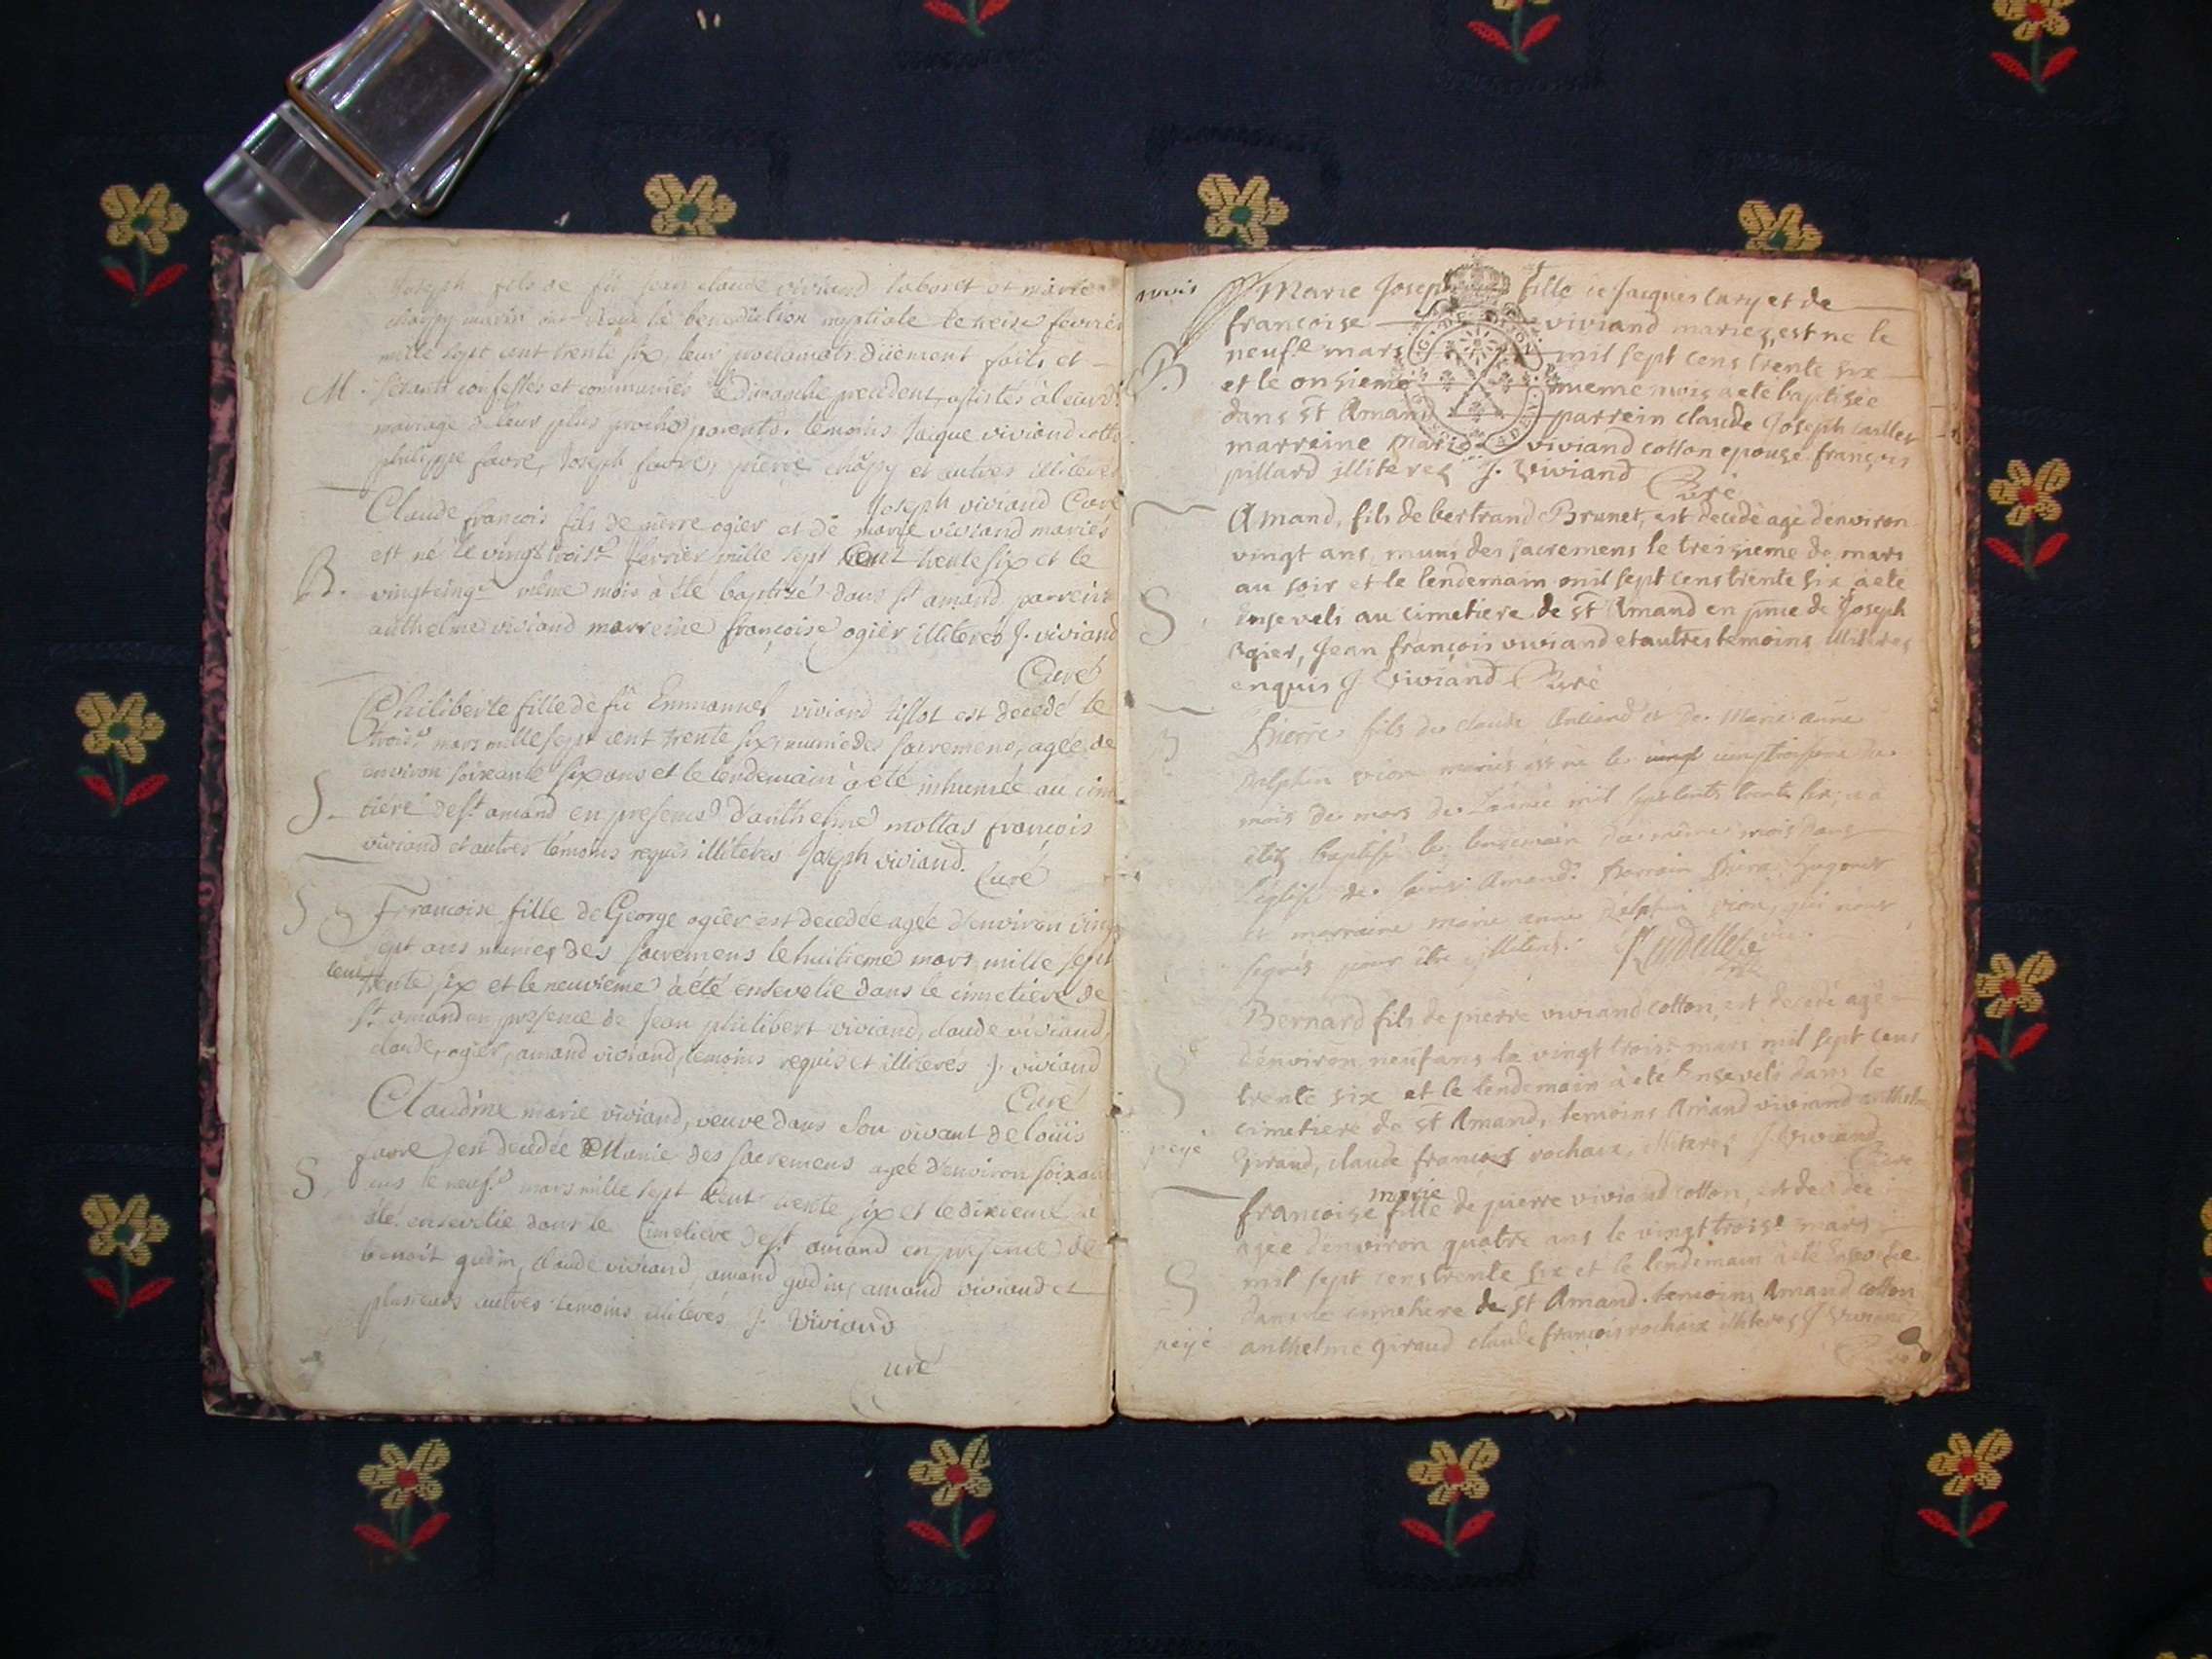 Joseph fils de fû Jean claude viviand laboret et marie
chapy mariés ont reçu la benediction nuptiale le treise fevrier
mille sept cent trente six, leur proclamats düement faits et
M. s'étants confessés et communiés le Dimanche precedent, assistés à leurd.
mariage de leur plus proches parents. temoins Jaque viviand cotto
philippe favre, Joseph favre, pierre chapy et autres illiteres
Joseph viviand Curé
Claude françois fils de pierre ogier et de marie viviand mariés
est né le vingt trois.e fevrier mille sept cent trente six et le
B. vingtcinq.e même mois à été baptizé dans st amand parrein
anthelme viviand marreine françoise ogier illiteres J. viviand
Curé
Philiberte fille de fû Emmanuel viviand tissot est decedé le
trois.e mars mille sept cent trente six, munie des sacremens, agée de
environ soixante six ans et le lendemain à eté inhumée au cime
S. tiére de st amand en presence d'anthelme mottas françois
viviand et autres témoins requis illitéres Joseph viviand.
Curé
S Francoise fille de George ogier est decedée agée d'environ vingt
sept ans munies des sacremens le huitieme mars mille sept
cent trente six et le neuvieme à été ensevelie dans le cimetiere de
st amand en presence de Jean philibert viviand, claude viviand,
claude, ogier, amand viviand, temoins requis et illiteres J. viviand
Curé
Claudine marie viviand, veuve dans son vivant de loüis
favre est decedée Munie des sacremens agée d'environ soixante
S. ans le neuf.e mars mille sept cent trente six et le dixieme a
été ensevelie dans le Cimetiere de st amand en presence de
benoit gudin, claude viviand, amand gudin, amand viviand et
plusieurs autres temoins illitéres J. Viviand
Curé
mois Marie Joseph fille de Jacques Cary et de
francoise viviand mariez, est ne le
neuf.e mars mil sept cens trente six
B et le onsieme mueme mois a eté baptisée
dans st Amand parrein claude Joseph cailler
marreine Marie viviand cotton epouse françois
pillard illiteres J. Viviand
Curé
Amand, fils de bertrand Brunet, est decedè agè d'environ
vingt ans, muni des sacremens le treisieme de mars
au soir et le lendemain mil sept cens trente six à eté
S. Enseveli au cimetiere de st Amand en pnce de Joseph
Ogier, Jean françois viviand et autres temoins illiteres
enquis J. Viviand Curé
B Pierre fils de claude et de Marie anne
Dalphin vion mariés est né le vingt vingttroisieme du
mois de mars de l'année mil sept cents trente six, et a
été baptisé le lendemain du même mois dans
l'église de saint Amand. Parrain Hugonet
et marraine marie anne Dalphin vion, qui n'ont
signés pour être illiteres. Rudelle
Bernard fils de pierre viviand cotton, est decedè agè
d'environ neuf ans le vingt trois.e mars mil sept cens
S trente six et le lendemain à eté Enseveli dans le
cimetiere de st Amand, temoins Amand viviand anthelme
peyé Giraud, claude françois rochaix, illiteres J. Viviand
Curé
marie
francoise fille de pierre viviand cotton, est decedee
agée d'environ quatre ans le vingt trois.e mars
S mil sept cens trente six et le lendemain à eté Ensevelie
dans le cimetiere de st Amand. temoins Amand cotton
peyé anthelme giraud claude françois rochaix illiteres J. Viviand
Curé